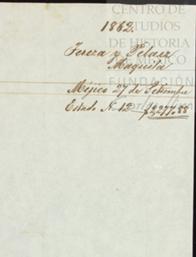 CENTRO DE
ESTUDIOS
DE HISTORIA
DE MÉXICO
FUNDACIÓN
1862.
Tereza y Pelaez
Maqueta
Méjico 27 de Setiembre
Estado N. 12